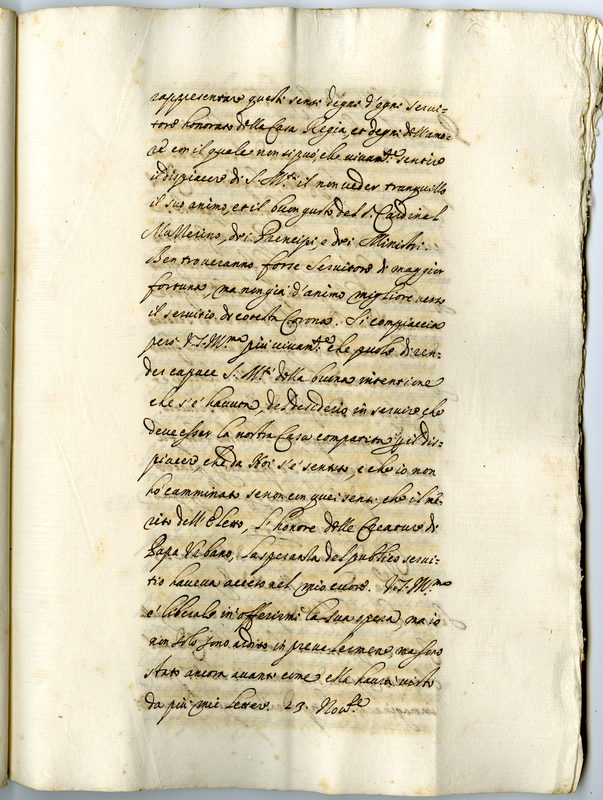 rappresentare questi sensi degni d'ogni servi=
tore honorato della Casa Regia, et degni dell'amo=
re con il quale non si può, che vivam.te sentire
il dispiacere di S. M.tà il non veder tranquillo
il suo animo, et il buon gusto del S.r Cardinal
Mazzerino, dei Prencipi, e dei Ministri.
Ben troveranno forse servitore di maggior
fortuna, ma non già d'animo migliore verso
il servitio di cotesta Corona. Si compiaccia
però V.S.Ill.ma più vivam.te che puole di ren=
der capace S. M.tà della buona intentione
che s'è havuta, del desiderio in servire che
deve esser la nostra Casa compatita p il dis=
piacere che da Noi s'è sentito, e che io non
ho camminato se non con quei sensi, che il me=
rito dell'Eletto, l'honore delle Creature di
Papa Urbano, la speranza del publico servi=
tio haveva acceso nel mio cuore. V.S.Ill.ma
è liberale in offerirmi la sua opera, ma io
non solo sono ardito in prevalermene, ma sono
stato ancora avanti come ella haurà visto
da più mie lettere. 23. Nov.re